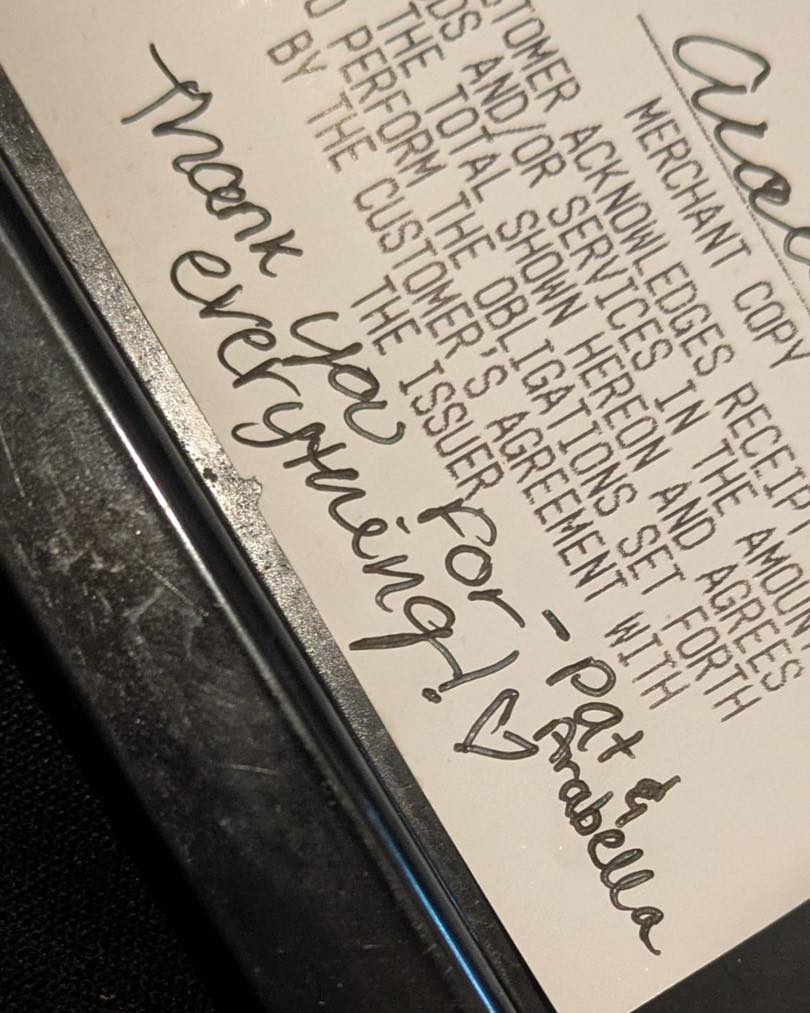 MERCHANT COPY
STOMER ACKNOWLEDGES RECEIPT
DS AND/OR SERVICES IN THE AMOUN
THE TOTAL SHOWN HEREON AND AGREES
O PERFORM THE OBLIGATIONS SET FORTH
BY THE CUSTOMER'S AGREEMENT WITH
THE ISSUER
Thank you for
everything! ♡
- Pat &
Arabella